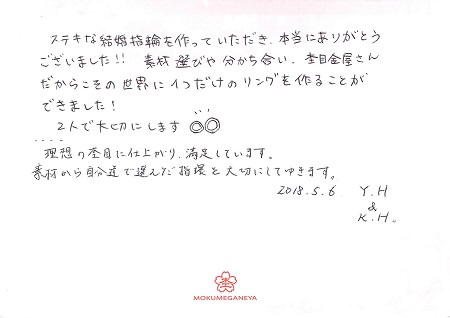 ステキな結婚指輪を作っていただき、本当にありがとう
ございました!! 素材選びや分かち合い、杢目金屋さん
だからこその世界に1つだけのリングを作ることが
できました!
2人で大切にします ◎◎
理想の杢目に仕上がり、満足しています。
素材から自分達で選んだ指環を大切にしてゆきます。
2018.5.6 Y.H
&
K.H.
杢
MOKUMEGANEYA